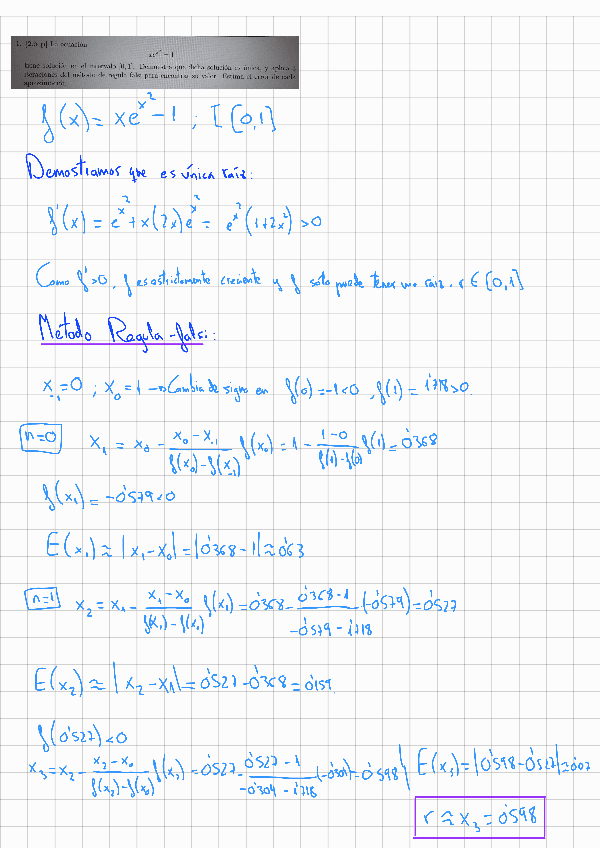 1. [2.5 p] La ecuación
xe^{x^2} = 1
tiene solución en el intervalo [0, 1]. Demuestra que dicha solución es única, y aplica
iteraciones del método de regula falsi para encontrar su valor. Estima el error de cada
aproximación.
f(x) = xe^{x^2} - 1 ; I [0,1]
Demostramos que es única raíz:
f'(x) = e^{x^2} + x(2x)e^{x^2} = e^{x^2}(1+2x^2) > 0
Como f'>0, f es estrictamente creciente y f sólo puede tener una raíz. r ∈ [0,1]
Método Regula-falsi:
x_{-1}=0 ; x_0=1 → Cambia de signo en f(0)=-1<0, f(1)=1'718>0.
n=0 x_1 = x_0 - \frac{x_0-x_{-1}}{f(x_0)-f(x_{-1})} f(x_0) = 1 - \frac{1-0}{f(1)-f(0)} f(1) = 0'368
f(x_1) = -0'579<0
E(x_1) ≈ |x_1-x_0| = |0'368-1| ≈ 0'63
n=1 x_2 = x_1 - \frac{x_1-x_0}{f(x_1)-f(x_0)} f(x_1) = 0'368 - \frac{0'368-1}{-0'579-1'718} (-0'579) = 0'527
E(x_2) ≈ |x_2-x_1| = 0'527-0'368 = 0'159.
f(0'527)<0
x_3 = x_2 - \frac{x_2-x_0}{f(x_2)-f(x_0)} f(x_2) = 0'527 - \frac{0'527-1}{-0'304-1'718} (-0'304) = 0'598 | E(x_3) = |0'598-0'527| ≈ 0'07
r ≈ x_3 = 0'598